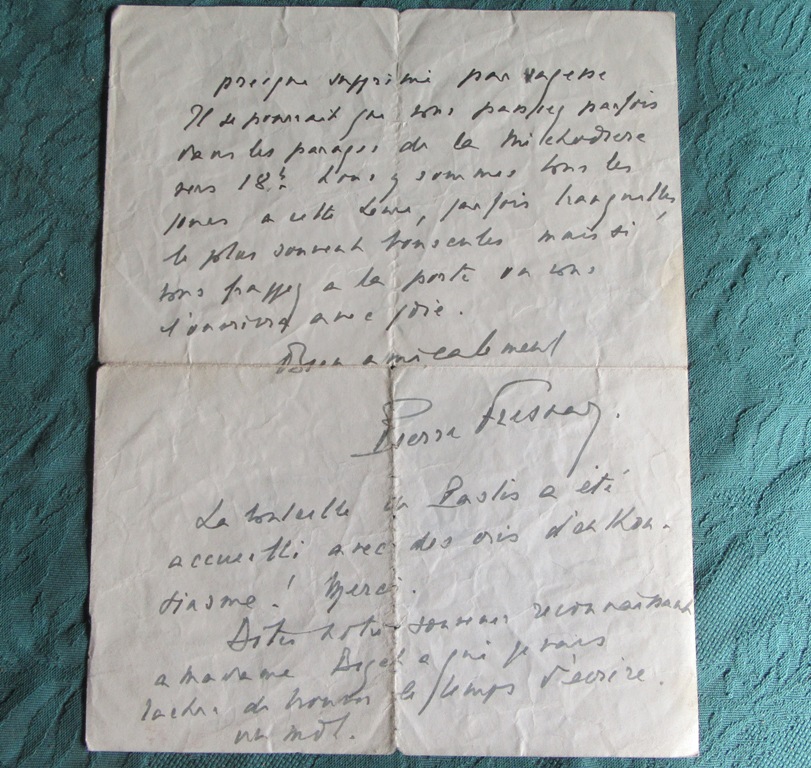 presque supprimé par sagesse
Il se pourrait que vous passiez parfois
dans les parages de la Michodière
vers 18h. Nous y sommes tous les
jours a cette heure, parfois tranquilles
le plus souvent bousculés mais si
vous frappez a la porte on vous
l'ouvrira avec joie.
Bien amicalement
Pierre Fresnay.
La bouteille de Pastis a été
accueilli avec des cris d'enthou-
siasme! Merci.
Dites notre souvenir reconnaissant
a madame a qui je vais
tacher de trouver le temps d'écrire
un mot.